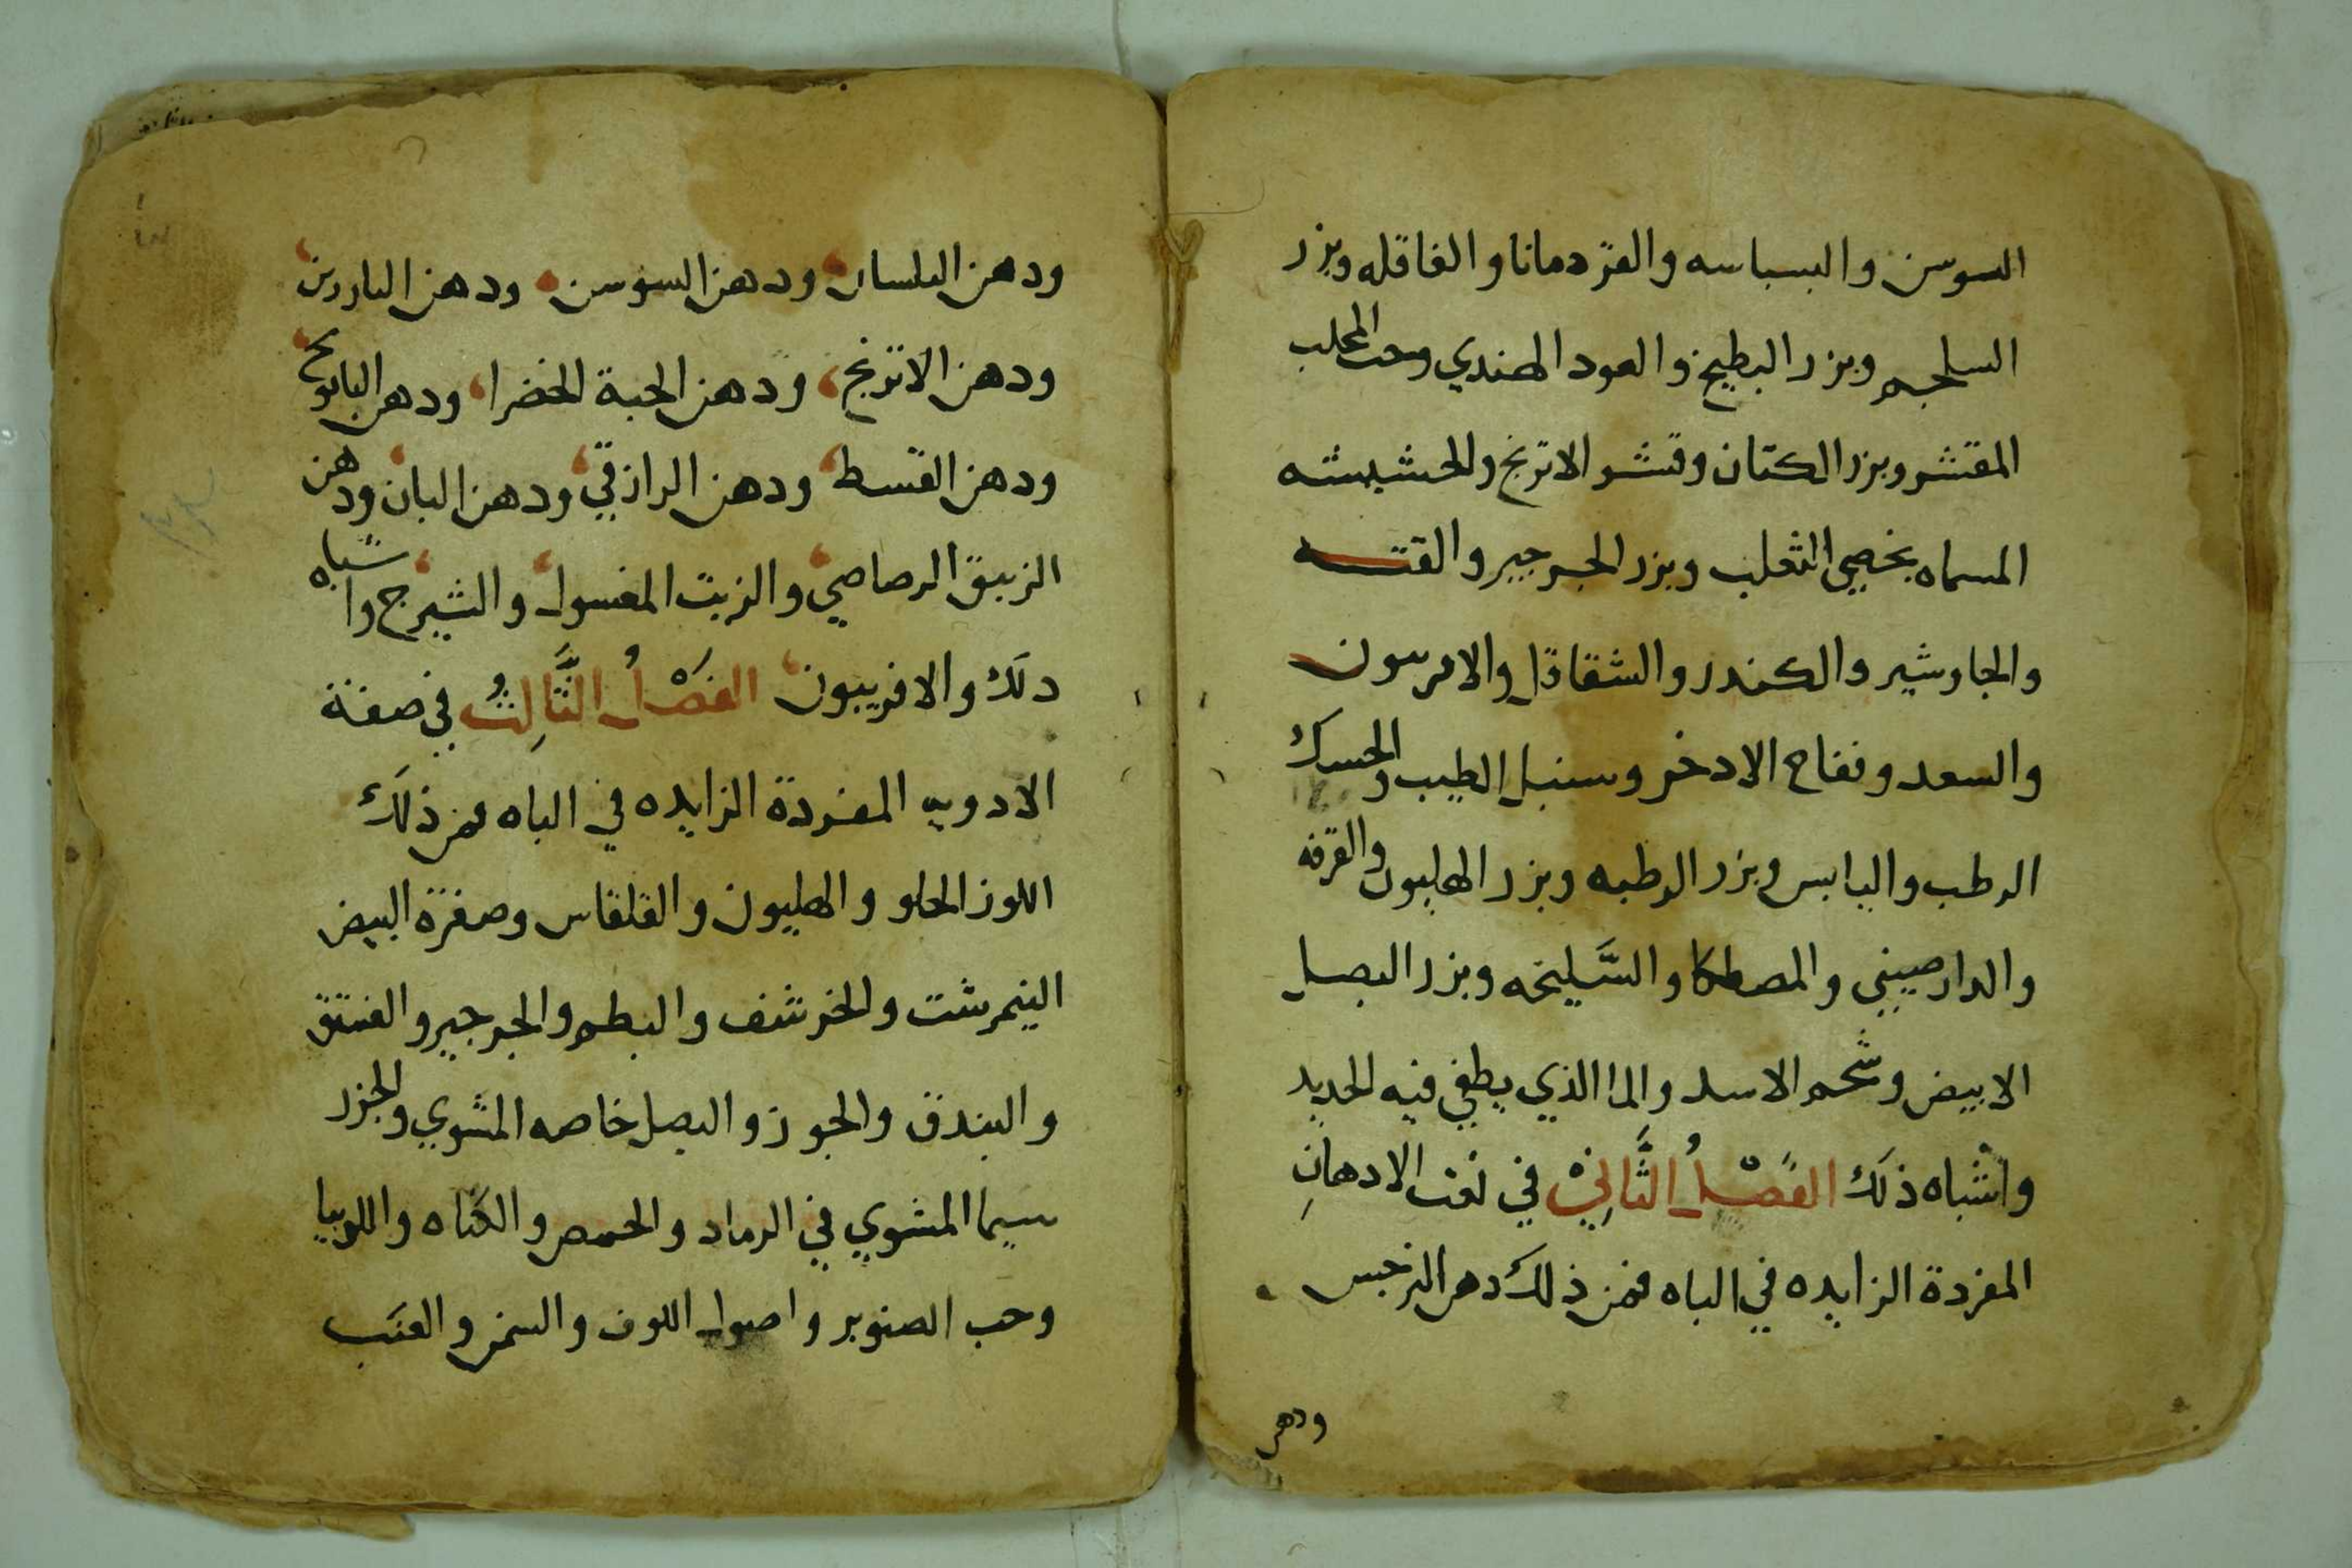 السوسن والبسباسه والقردمانا والقاقله وبزر
السلجم وبزر البطيخ والعود الهندي وحب المحلب
المقشر وبزر الكتان وقشر الاترنج والحشيشه
المسماه بخصي الثعلب وبزر الجرجير والقنه
والجاوشير والكندر والشقاقل والامرسون
والسعد وفقاح الادخر وسنبل الطيب والحسك
الرطب واليابس وبزر الرطبه وبزر الهليون والقرفه
والدارصيني والمصطكا والسَّليخه وبزر البصل
الابيض وشحم الاسد والما الذي يطفي فيه الحديد
واشباه ذلك الفصْلُ الثَّانِيْ في نعت الادهانِ
المفردة الزايده في الباه فمن ذلك دهن النرجس
ودهن
ودهن البلسان ودهن السوسن ودهن الناردين
ودهن الاترنج ودهن الحبة الخضرا ودهن البابونج
ودهن القسط ودهن الرازقي ودهن البان ودهن
الزيبق الرصاصي والزيت المغسول والشيرج واشباه
دلك والافريبون الفَصْلُ الثَّالِثُ في صفة
الادويه المفردة الزايده في الباه فمن ذلك
اللوز الحلو والهليون والقلقاس وصفرة البيض
النيمرشت والخرشف والبطم والجرجير والفستق
والبندق والجوز والبصل خاصه المشوي والجزر
سيما المشوي في الرماد والحمص والكماه واللوبيا
وحب الصنوبر واصول اللوف والسمن والعنب